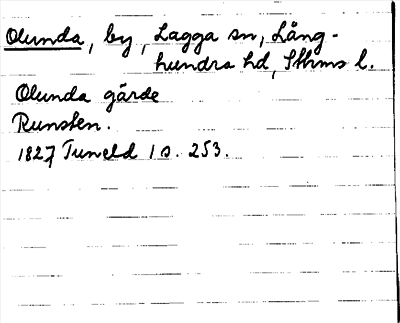 Olunda, by, Lagga sn, Lång-
hundra hd, Sthms l.
Olunda gärde
Runsten.
1827 Tuneld 1 s. 253.